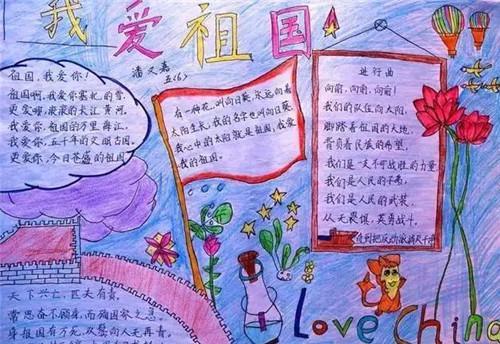 我爱祖国
潘文嘉
五(6)
祖国,我爱你!
祖国啊,我爱你繁忙的雪,
更爱哪滚滚的大江黄河,
我爱你,祖国的万里海江,
我爱你,五千年的文明古国,
更爱你,今日苍盛的祖国
有一种花,叫向日葵,永远向着
太阳生长,我的名字也叫向日葵
我心中的太阳就是祖国,我爱
我的祖国。
进行曲
向前,向前,向前!
我们的队伍向太阳,
脚踏着祖国的大地,
背负着民族的希望,
我们是一支不可战胜的力量
我们是人民的子弟,
我们是人民的武装,
从无畏惧,英勇战斗,
直到把反动派消灭干净
天下兴亡,匹夫有责,
常思奋不顾身,而殉国家之急。
身报国有万死,双鬓向人无再青。
Love China